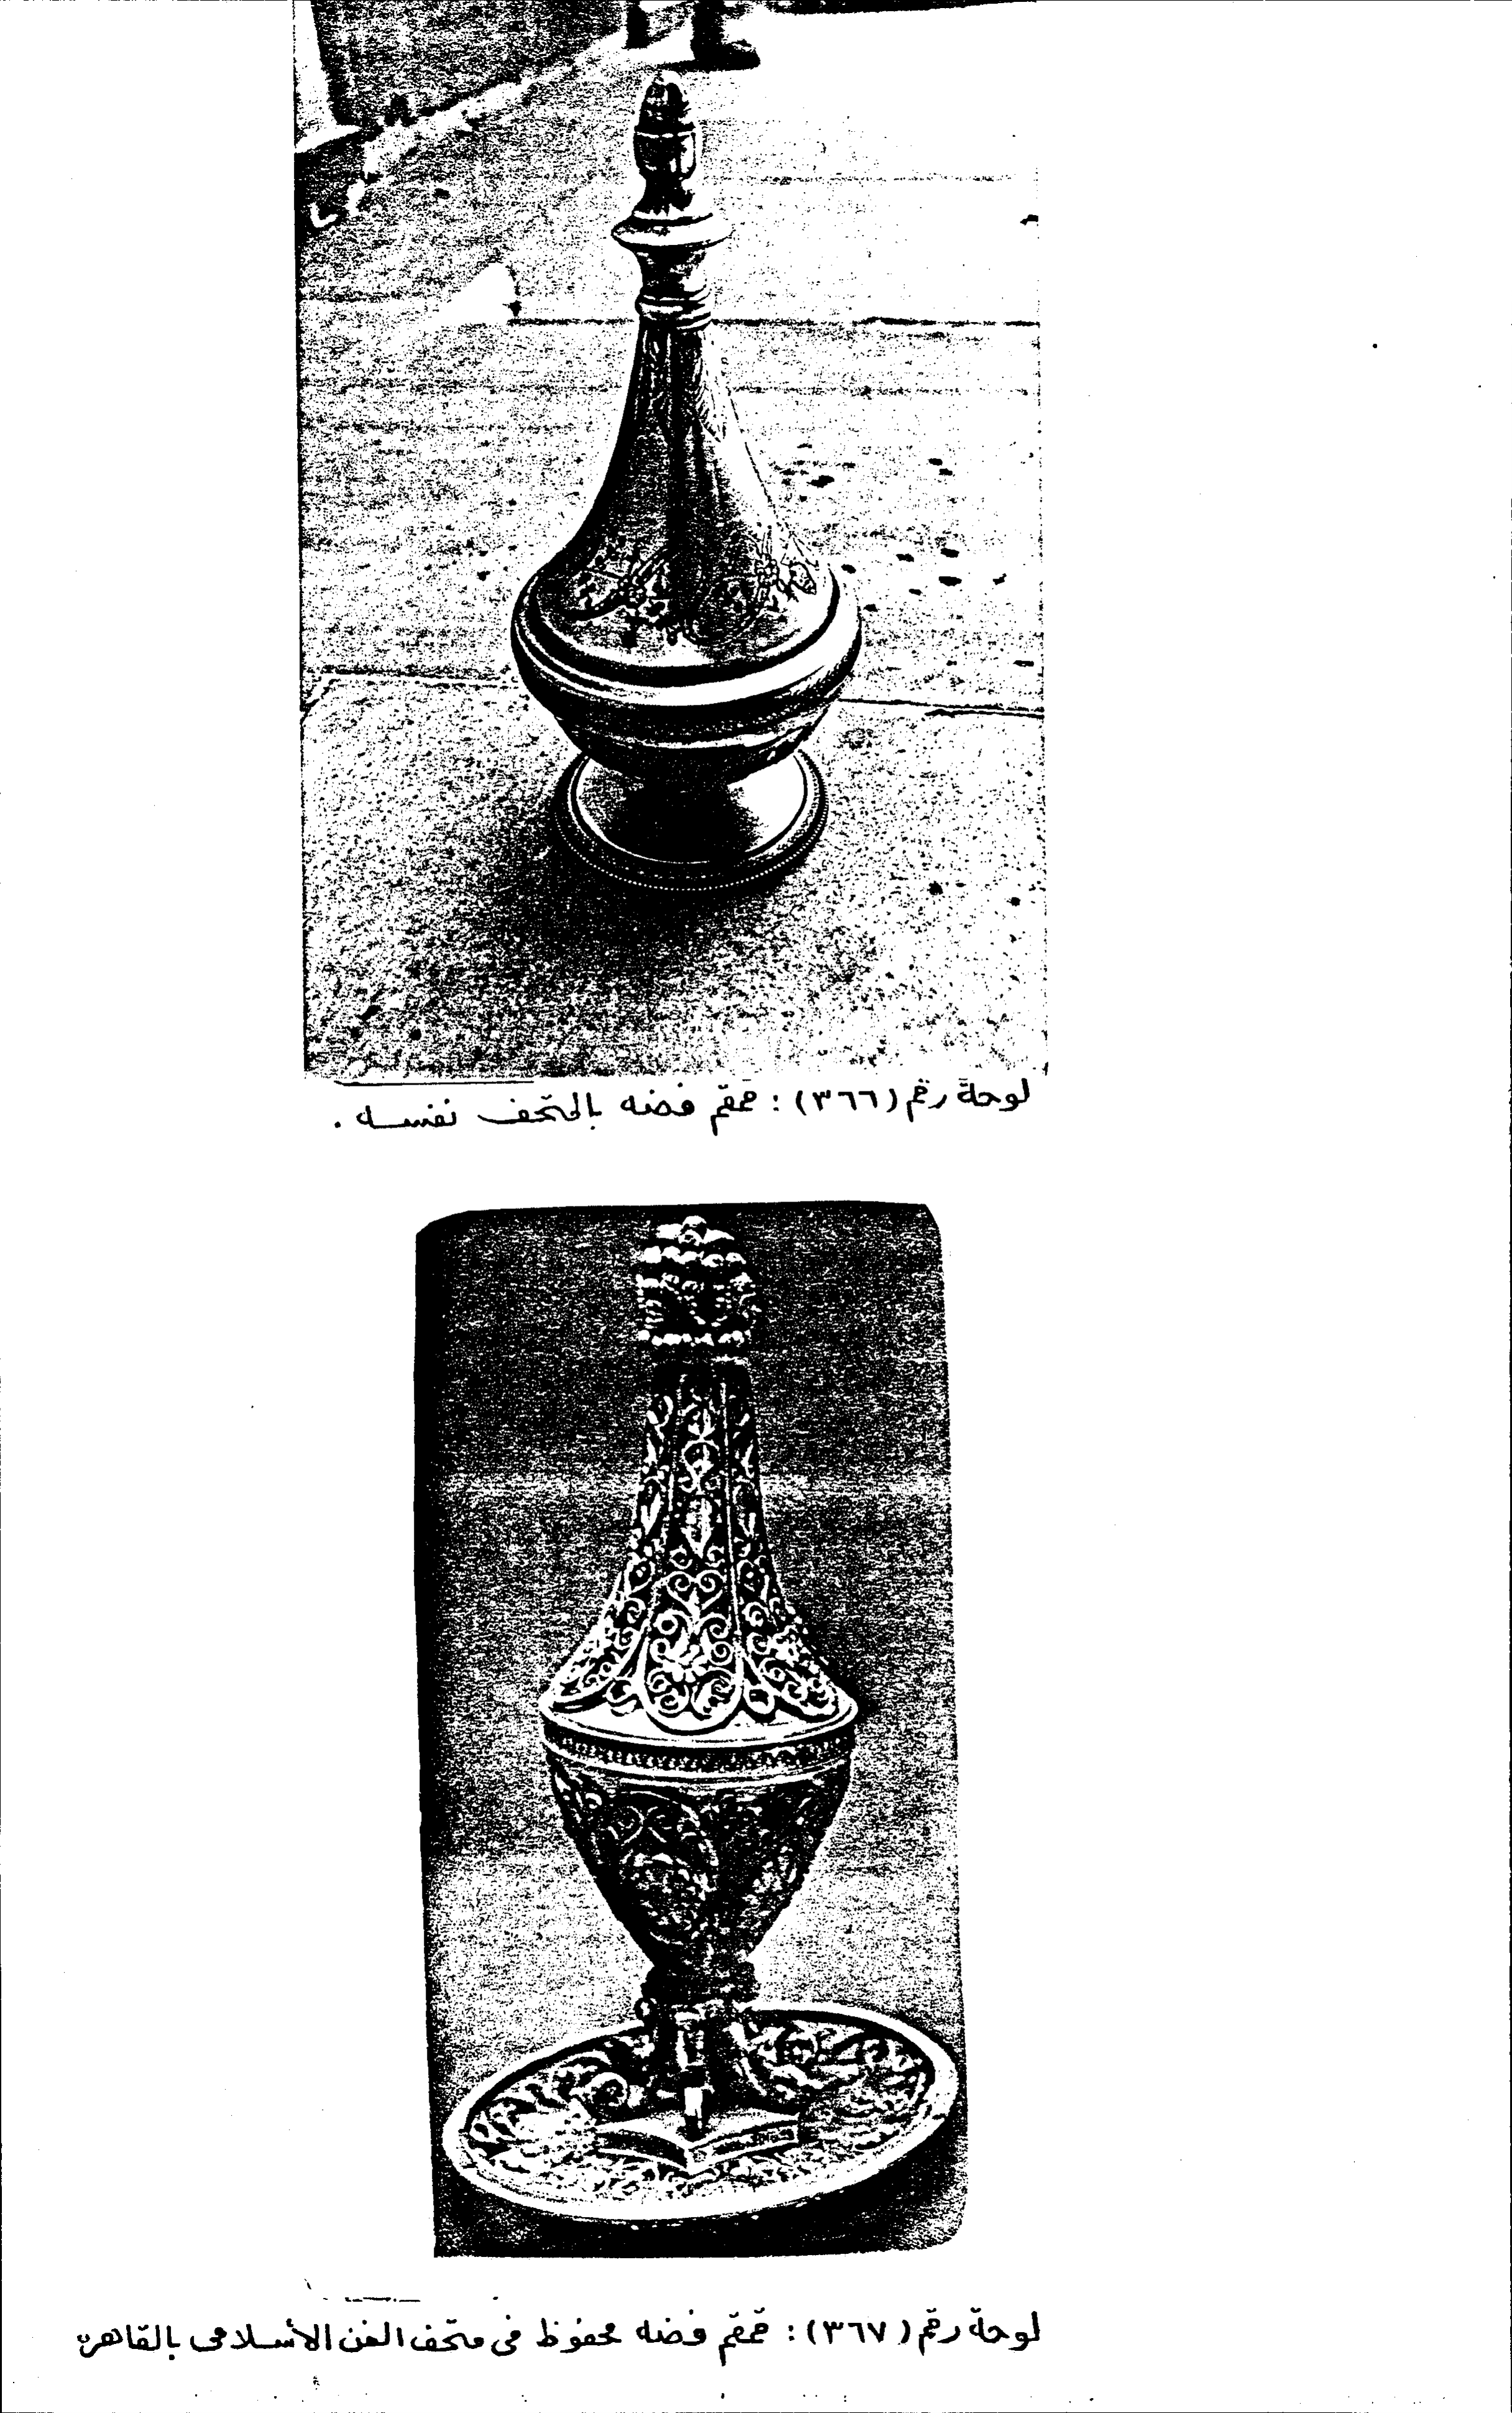 لوحة رقم (٣٦٦) : قمقم فضه بالمتحف نفسه .
لوحة رقم (٣٦٧) : قمقم فضه محفوظ فى متحف الفن الأسلامى بالقاهرة